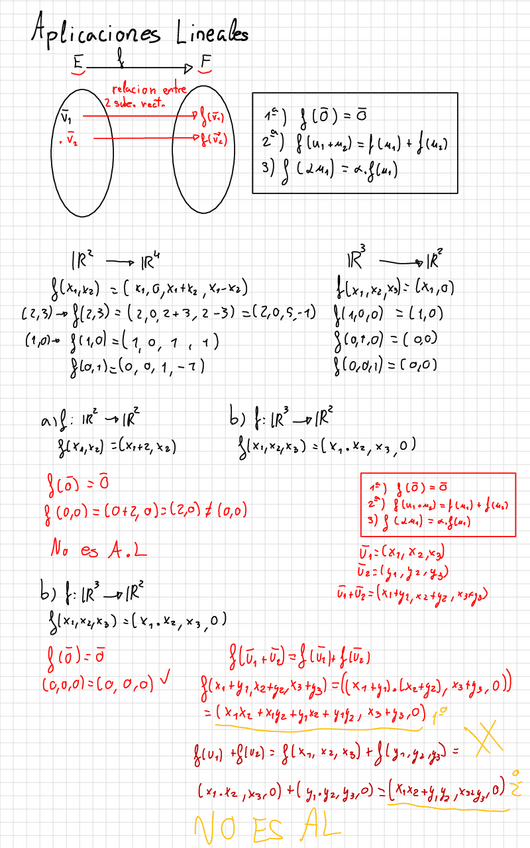 Aplicaciones Lineales
E f F
relacion entre
2 sube. vect.
v̄₁ f(v̄₁)
. v̄₂ f(v̄₂)
1ª) f(ō) = ō
2ª) f(u₁+u₂) = f(u₁) + f(u₂)
3) f(αu₁) = α.f(u₁)
ℝ² → ℝ⁴
f(x₁,x₂) = (x₁,0,x₁+x₂,x₁-x₂)
(2,3) → f(2,3) = (2,0,2+3,2-3) = (2,0,5,-1)
(1,0) → f(1,0) = (1,0,1,1)
f(0,1) = (0,0,1,-1)
ℝ³ → ℝ²
f(x₁,x₂,x₃) = (x₁,0)
f(1,0,0) = (1,0)
f(0,1,0) = (0,0)
f(0,0,1) = (0,0)
a) f: ℝ² → ℝ²
f(x₁,x₂) = (x₁+2,x₂)
b) f: ℝ³ → ℝ²
f(x₁,x₂,x₃) = (x₁.x₂,x₃,0)
f(ō) = ō
f(0,0) = (0+2,0) = (2,0) ≠ (0,0)
No es A.L
1ª) f(ō) = ō
2ª) f(u₁+u₂) = f(u₁) + f(u₂)
3) f(αu₁) = α.f(u₁)
v̄₁ = (x₁,x₂,x₃)
v̄₂ = (y₁,y₂,y₃)
v̄₁+v̄₂ = (x₁+y₁,x₂+y₂,x₃+y₃)
b) f: ℝ³ → ℝ²
f(x₁,x₂,x₃) = (x₁.x₂,x₃,0)
f(ō) = ō
(0,0,0) = (0,0,0) ✓
f(v̄₁+v̄₂) = f(v̄₁)+f(v̄₂)
f(x₁+y₁,x₂+y₂,x₃+y₃) = ((x₁+y₁).(x₂+y₂),x₃+y₃,0))
= (x₁x₂+x₁y₂+y₁x₂+y₁y₂,x₃+y₃,0) 1º
f(v₁)+f(v₂) = f(x₁,x₂,x₃)+f(y₁,y₂,y₃) =
(x₁.x₂,x₃,0)+(y₁.y₂,y₃,0) = (x₁x₂+y₁y₂,x₃+y₃,0) 2º
NO ES AL